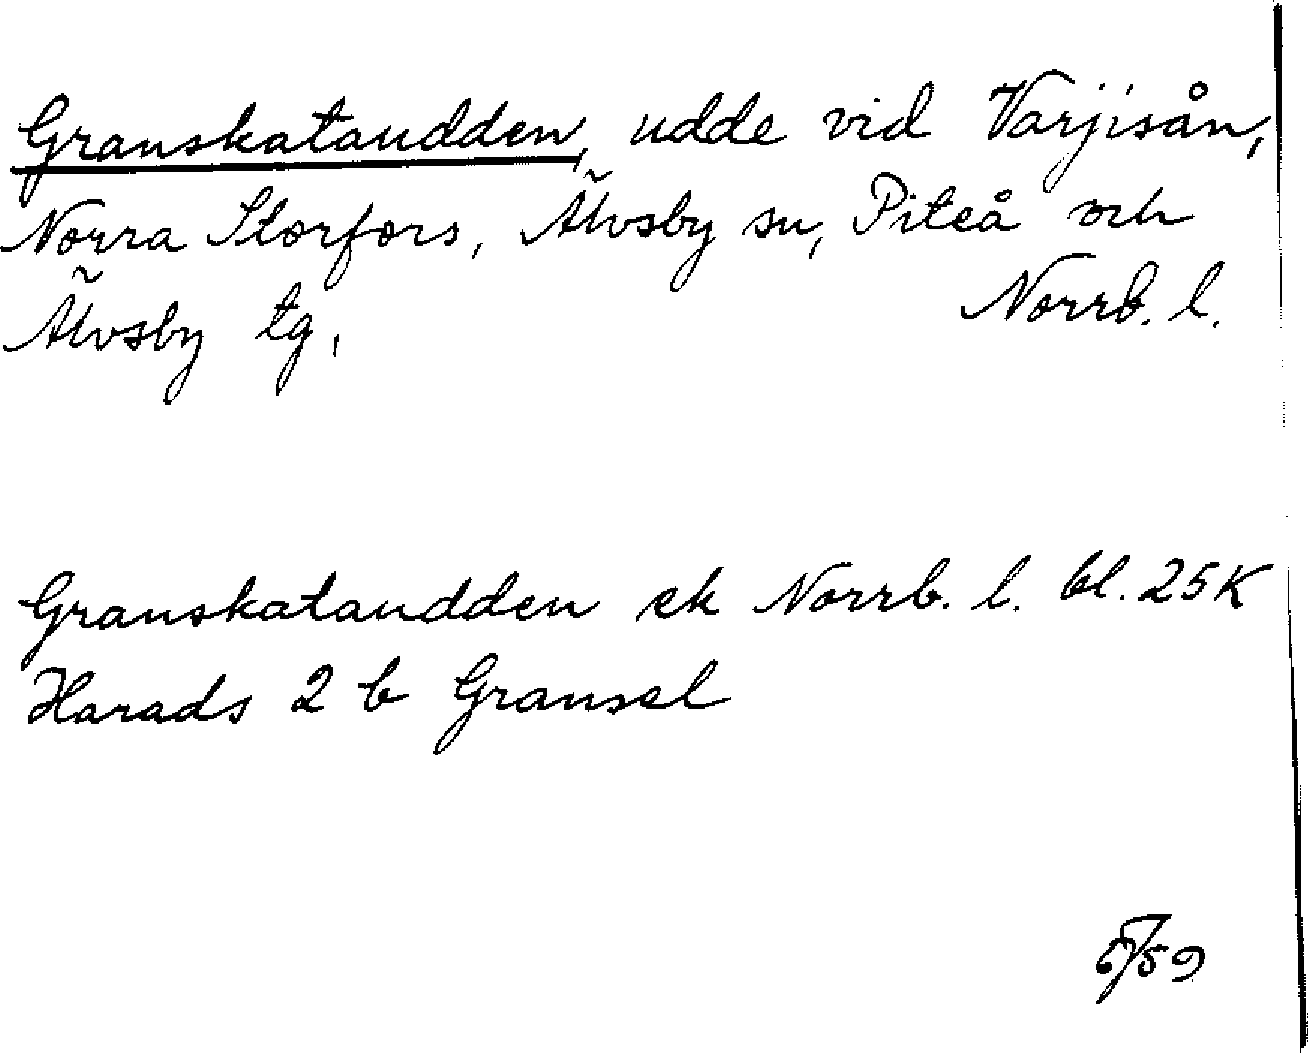 Granskataudden, udde vid Varjisån,
Norra Storfors, Älvsby sn, Piteå och
Älvsby tg,
Norrb. l.
Granskataudden ek Norrb. l. bl. 25K
Harads 2 b Gransel